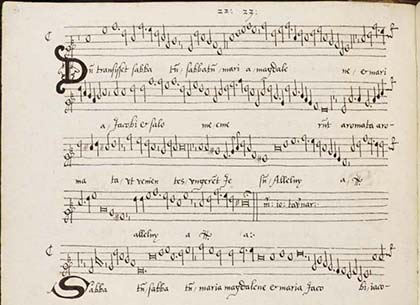 22: 23:
Dū transisset sabba tū: sabbatū: mari a: magdale ne, et mari
a: Jacobi et salo me eme rūt aromata aro-
ma ta: ut venien tes ungerēt Je sū: Alleluy a:
m: io: tavnar:
alleluy a
Sabba tū: sabba tū: maria magdalene et maria Jaco bi, iaco: